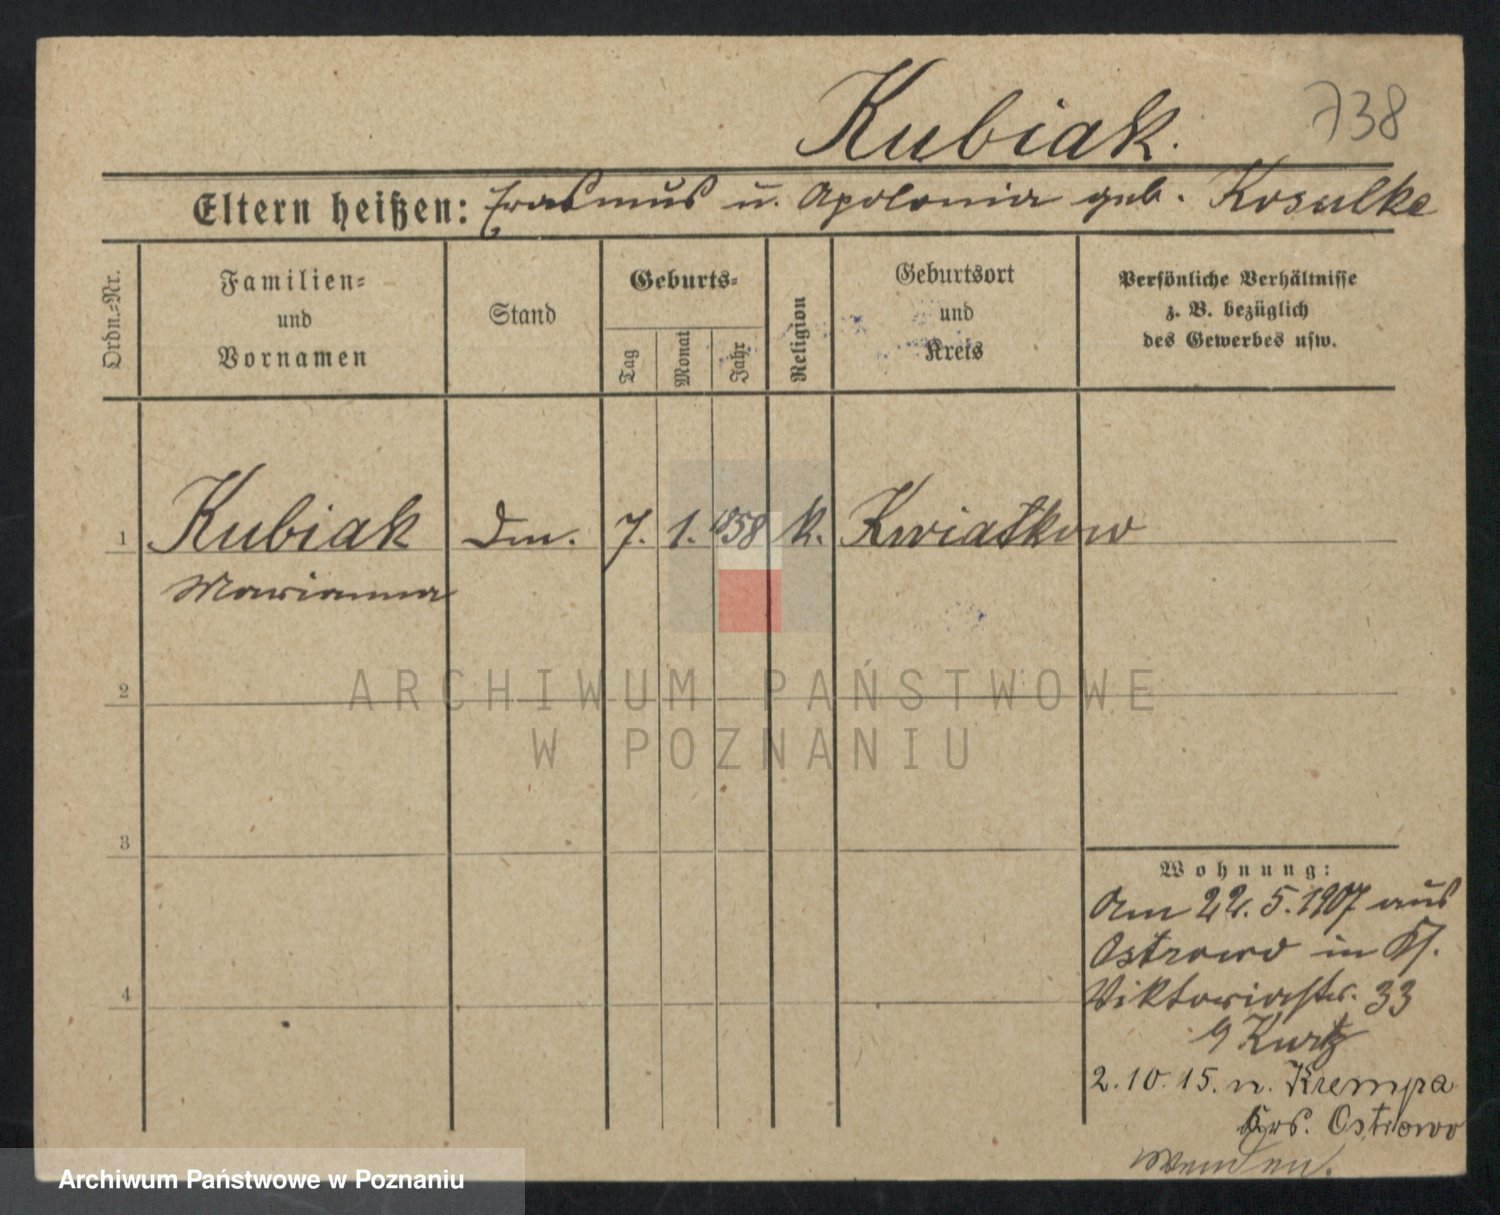 Kubiak. 738
Eltern heißen: Erasmus u. Apolonia geb. Kosulke
Ordn.-Nr.
Familien-
und
Vornamen
Stand
Geburts-
Tag
Monat
Jahr
Religion
Geburtsort
und
Kreis
Persönliche Verhältnisse
z. B. bezüglich
des Gewerbes usw.
1 Kubiak 7. 1. 1858 k. Kwiatkow
Marianna
2
ARCHIWUM PAŃSTWOWE
W POZNANIU
3
Wohnung:
Am 22. 5. 1907 aus
Ostrowo in
4
Viktoriastr. 33
Kurtz
2. 10. 15. n. Krempa
Krs. Ostrowo
Archiwum Państwowe w Poznaniu